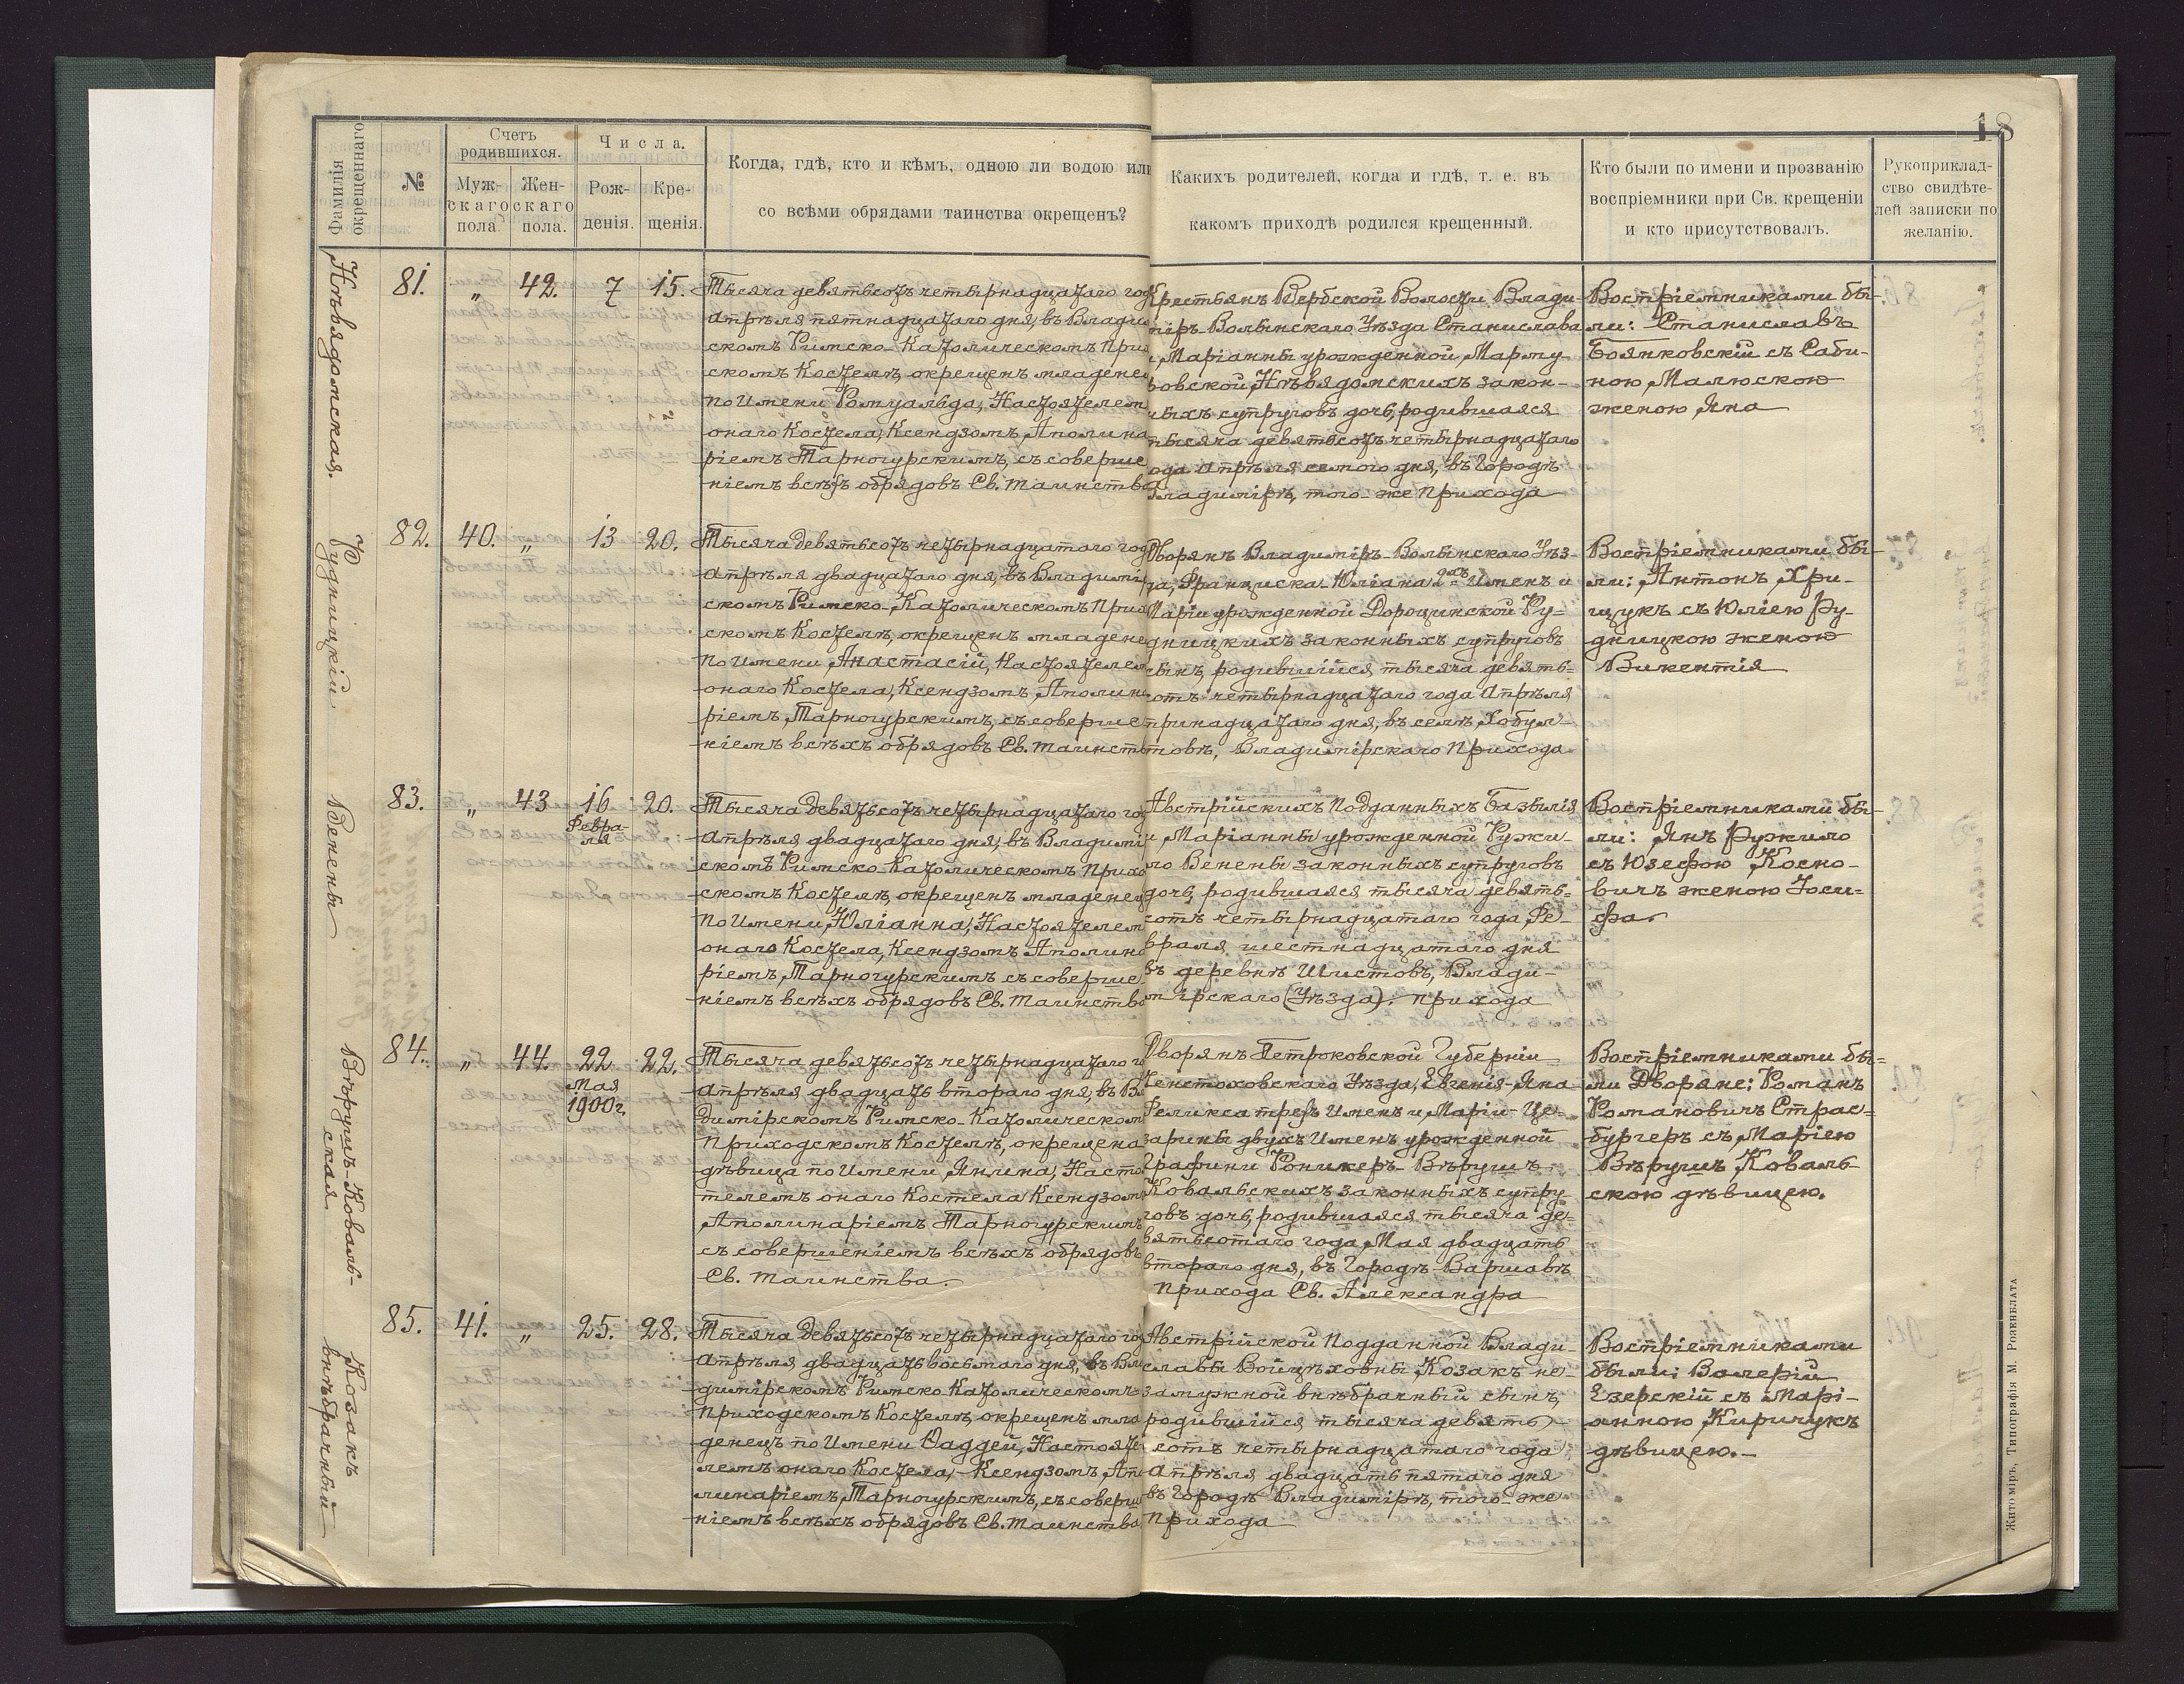 18
Фамилія окрещеннаго
№
Счетъ родившихся.
Муж-
скаго
пола.
Жен-
скаго
пола.
Числа.
Рож-
денія.
Кре-
щенія.
Когда, гдѣ, кто и кѣмъ, одною ли водою или
со всѣми обрядами таинства окрещенъ?
Какихъ родителей, когда и гдѣ, т. е. въ
какомъ приходѣ родился крещенный.
Кто были по имени и прозванію
воспріемники при Св. крещеніи
и кто присутствовалъ.
Рукоприклад-
ство свидѣте-
лей записки по
желанію.
Нѣвядомская.
81. „ 42. 7 15.
Тысяча девятьсотъ четырнадцатаго год
Апрѣля пятнадцатаго дня, въ Влади
скомъ Римско-Католическомъ При
скомъ Костелѣ, окрещенъ младене
по Имени Ромуальда, Настоятелем
онаго Костела, Ксендзомъ Аполина
ріемъ Тарногурскимъ, съ соверше
ніемъ всѣхъ обрядовъ Св. таинства
Крестьянъ Вербской Волости Влади-
міръ-Волынскаго Уѣзда Станислава
и Маріанны урожденной Марму
ровской Нѣвядомскихъ закон-
ныхъ супруговъ дочь, родившаяся
тысяча девятьсотъ четырнадцатаго
года Апрѣля семого дня, въ Городѣ
Владимірѣ, того-же Прихода
Воспріемниками бы-
ли: Станиславъ
Боянковскій съ Саби-
ною Малюскою
женою Яна
Рудницкій
82. 40. „ 13 20.
Тысяча девятьсотъ четырнадцатаго год
Апрѣля двадцатаго дня, въ Владимі
скомъ Римско-Католическомъ При
скомъ Костелѣ, окрещенъ младене
по Имени Анастасій, Настоятелем
онаго Костела, Ксендзомъ Аполин
ріемъ Тарногурскимъ, съ соверше
ніемъ всѣхъ обрядовъ Св. таинст
Дворянъ Владиміръ-Волынскаго Уѣз-
да, Франциска-Юліана 2хъ Именъ и
Маріи урожденной Дорощинской Ру-
дницкихъ законныхъ супруговъ
сынъ, родившійся тысяча девять-
сотъ четырнадцатаго года Апрѣля
тринадцатаго дня, въ селѣ Хобул-
товѣ, Владимірскаго Прихода
Воспріемниками бы-
ли: Антонъ Хри-
щукъ съ Юліею Ру-
дницкою женою
Викентія
Венены
83. „ 43 16 20.
Февра-
ля
Тысяча девятьсотъ четырнадцатаго го
Апрѣля двадцатаго дня, въ Владимі
скомъ Римско-Католическомъ Прихо
скомъ Костелѣ, окрещенъ младенец
по Имени Юліанна, Настоятелем
онаго Костела, Ксендзомъ Аполин
ріемъ Тарногурскимъ съ соверше
ніемъ всѣхъ обрядовъ Св. таинства
Австрійскихъ Подданныхъ Базылія
и Маріанны урожденной Ружи-
ло Венены законныхъ супруговъ
дочь, родившаяся тысяча девять-
сотъ четырнадцатаго года, Фе-
враля шестнадцатаго дня
въ деревнѣ Шистовъ, Влади-
мірскаго (Уѣзда). прихода
Воспріемниками бы-
ли: Янъ Ружило
съ Юзефою Косно-
вичъ женою Іоси-
фа
Вѣрушъ-Коваль-
ская
84. „ 44. 22 22.
Мая
1900г.
Тысяча девятьсотъ четырнадцатаго г
Апрѣля двадцать второго дня, въ Вл
димірскомъ Римско-Католическом
Приходскомъ Костелѣ, окрещена
дѣвица по Имени Янина, Насто
телемъ онаго Костела Ксендзом
Аполинаріемъ Тарногурскимъ
съ совершеніемъ всѣхъ обрядовъ
Св. таинства.
Дворянъ Петроковской Губерніи
Ченстоховскаго Уѣзда, Евгенія-Яна-
Феликса трехъ Именъ и Маріи-Це-
зарины двухъ Именъ урожденной
Графини Роникеръ-Вѣрушъ-
Ковальскихъ законныхъ супру-
говъ дочь, родившаяся тысяча де-
вятьсотаго года, Мая двадцать
второго дня, въ Городѣ Варшавѣ
Прихода Св. Александра
Воспріемниками бы-
ли Дворяне: Романъ
Романовичъ Страс-
бургеръ съ Маріею
Вѣрушъ Коваль-
скою дѣвицею.
Козакъ
внѣбрачный
85. 41. „ 25. 28.
Тысяча девятьсотъ четырнадцатаго го
Апрѣля двадцать восьмаго дня, въ Вл
димірскомъ Римско-Католическомъ
Приходскомъ Костелѣ, окрещен мла
денецъ по Имени Ѳаддей, Настояте
лемъ онаго Костела,-Ксендзомъ Ап
линаріемъ Тарногурскимъ, съ соверш
ніемъ всѣхъ обрядовъ Св. таинства
Австрійской Подданной Влади-
славы Войцѣховны Козакъ не-
замужной внѣбрачный сынъ,
родившійся тысяча девять-
сотъ четырнадцатаго года
Апрѣля двадцать пятаго дня
въ Городѣ Владимірѣ, того-же
Прихода
Воспріемниками
были: Валерій
Езерскій съ Марі-
анною Киричукъ
дѣвицею.-
Житоміръ, Типографія М. Розенблата